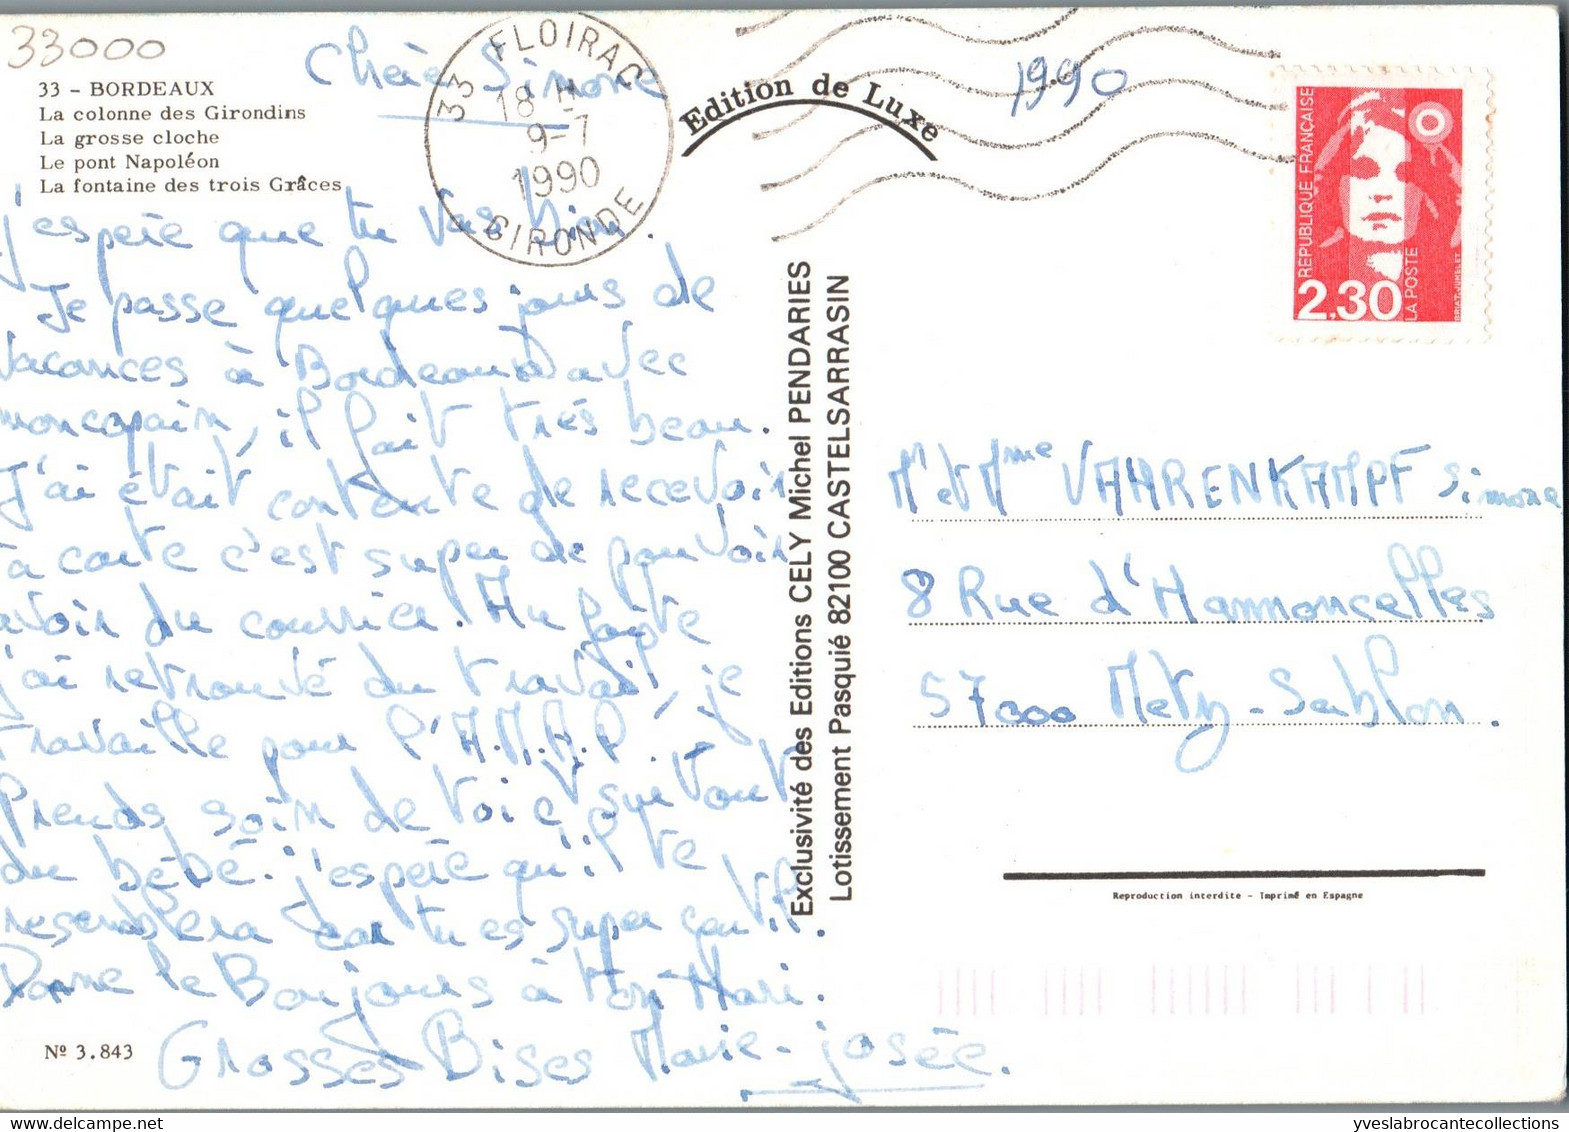 33000
33 - BORDEAUX
La colonne des Girondins
La grosse cloche
Le pont Napoléon
La fontaine des trois Grâces
Chère Simone
33 FLOIRAC
18 H
9-7
1990
GIRONDE
Edition de Luxe
1990
RÉPUBLIQUE FRANÇAISE
2,30
LA POSTE
BRIAT. JUMELET
j'espère que tu vas bien.
Je passe quelques jours de
vacances à Bordeaux avec
mon copain, il fait très beau.
J'ai était contente de recevoir
ta carte c'est super de pouvoir
avoir du courrier. Au faite
j'ai retrouvé du travail, je
travaille pour l'A.M.A.P.
Prends soin de toi et surtout
du bébé. j'espère qu'il te
resemblera car tu es super gentil.
Donne le Bonjours à ton Mari.
Grosses Bises Marie-josée.
Nº 3.843
Exclusivité des Editions CELY Michel PENDARIES
Lotissement Pasquié 82100 CASTELSARRASIN
Mr et Mme VAHRENKAMPF Simone
8 Rue d'Hannoncelles
57000 Metz-Sablon.
Reproduction interdite - Imprimé en Espagne
yveslabrocantecollections